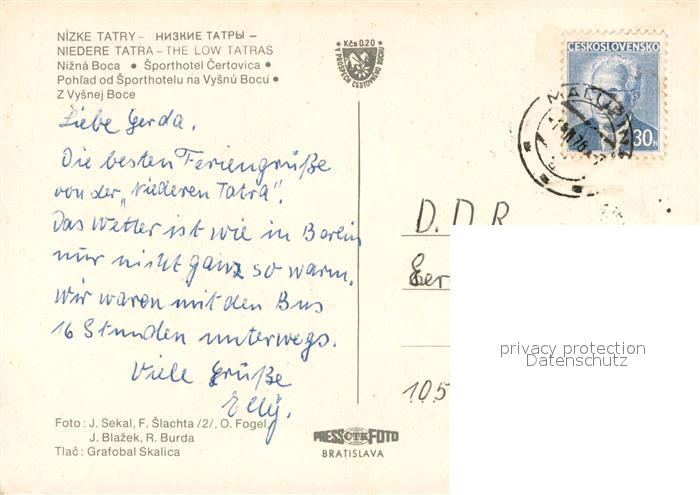 NÍZKE TATRY – НИЗКИЕ ТАТРЫ –
NIEDERE TATRA – THE LOW TATRAS
Nižná Boca • Športhotel Čertovica •
Pohľad od Športhotelu na Vyšnú Bocu •
Z Vyšnej Boce
Kčs 0,20
V PROSPECH CESTOVNÉHO RUCHU
ČESKOSLOVENSKO
30h
Liebe Gerda.
Die besten Feriengrüße
von der „Niederen Tatra".
Das Wetter ist wie in Berlin
nur nicht ganz so warm.
Wir waren mit den Bus
16 Stunden unterwegs.
Viele Grüße
Elly.
D.D.R.
105
privacy protection
Datenschutz
Foto: J. Sekal, F. Šlachta /2/, O. Fogel,
J. Blažek, R. Burda
Tlač: Grafobal Skalica
PRESSFOTO
ČTK
BRATISLAVA